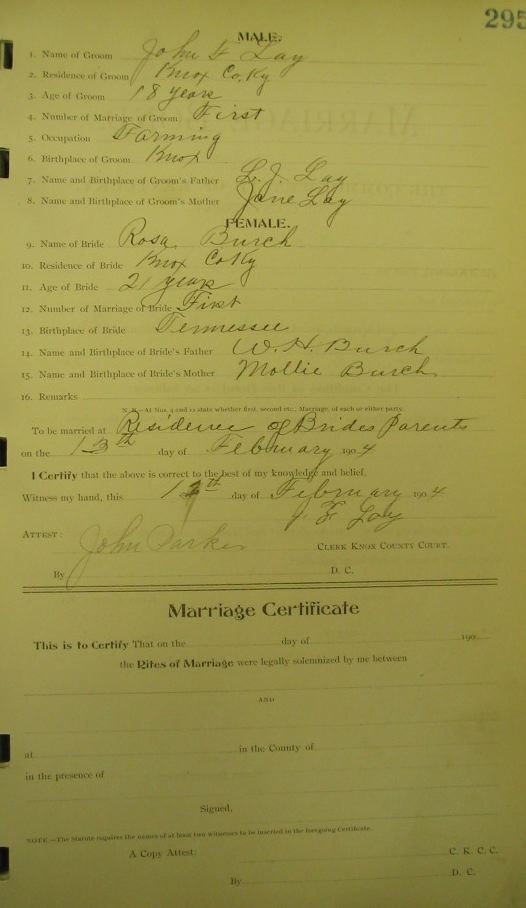 295
MALE.
1. Name of Groom John F Lay
2. Residence of Groom Knox Co. Ky
3. Age of Groom 18 years
4. Number of Marriage of Groom First
5. Occupation Farming
6. Birthplace of Groom Knox
7. Name and Birthplace of Groom's Father L. J. Lay
8. Name and Birthplace of Groom's Mother Jane Lay
FEMALE.
9. Name of Bride Rosa Burch
10. Residence of Bride Knox Co Ky
11. Age of Bride 21 years
12. Number of Marriage of Bride First
13. Birthplace of Bride Tennessee
14. Name and Birthplace of Bride's Father W. H. Burch
15. Name and Birthplace of Bride's Mother Mollie Burch
16. Remarks
N. B.—At Nos. 4 and 12 state whether first, second etc., Marriage, of each or either party.
To be married at Residence of Brides Parents
on the 13th day of February 1904
I Certify that the above is correct to the best of my knowledge and belief.
Witness my hand, this day of February 1904
J F Lay
ATTEST: John Parker CLERK KNOX COUNTY COURT.
By D. C.
Marriage Certificate
This is to Certify That on the day of 190
the Rites of Marriage were legally solemnized by me between
AND
at in the County of
in the presence of
Signed,
NOTE.—The Statute requires the names of at least two witnesses to be inserted in the foregoing Certificate.
A Copy Attest: C. K. C. C.
By D. C.